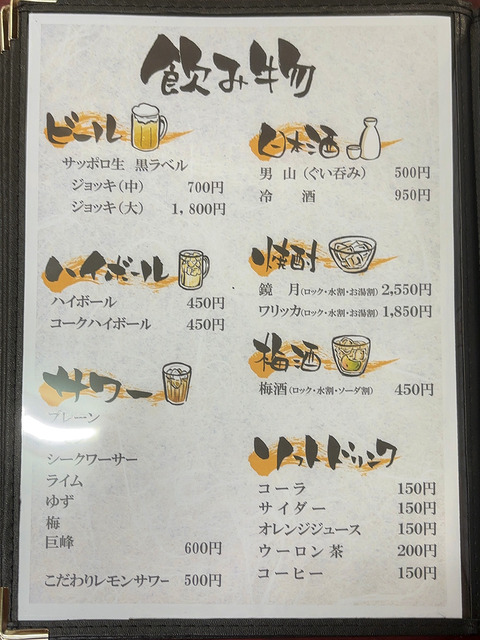 飲み物
ビール
サッポロ生 黒ラベル
ジョッキ(中) 700円
ジョッキ(大) 1,800円
ハイボール
ハイボール 450円
コークハイボール 450円
サワー
プレーン
シークワーサー
ライム
ゆず
梅
巨峰 600円
こだわりレモンサワー 500円
日本酒
男 山(ぐい呑み) 500円
冷 酒 950円
焼酎
鏡 月(ロック・水割・お湯割) 2,550円
ワリッカ(ロック・水割・お湯割) 1,850円
梅酒
梅酒(ロック・水割・ソーダ割) 450円
ソフトドリンク
コーラ 150円
サイダー 150円
オレンジジュース 150円
ウーロン茶 200円
コーヒー 150円